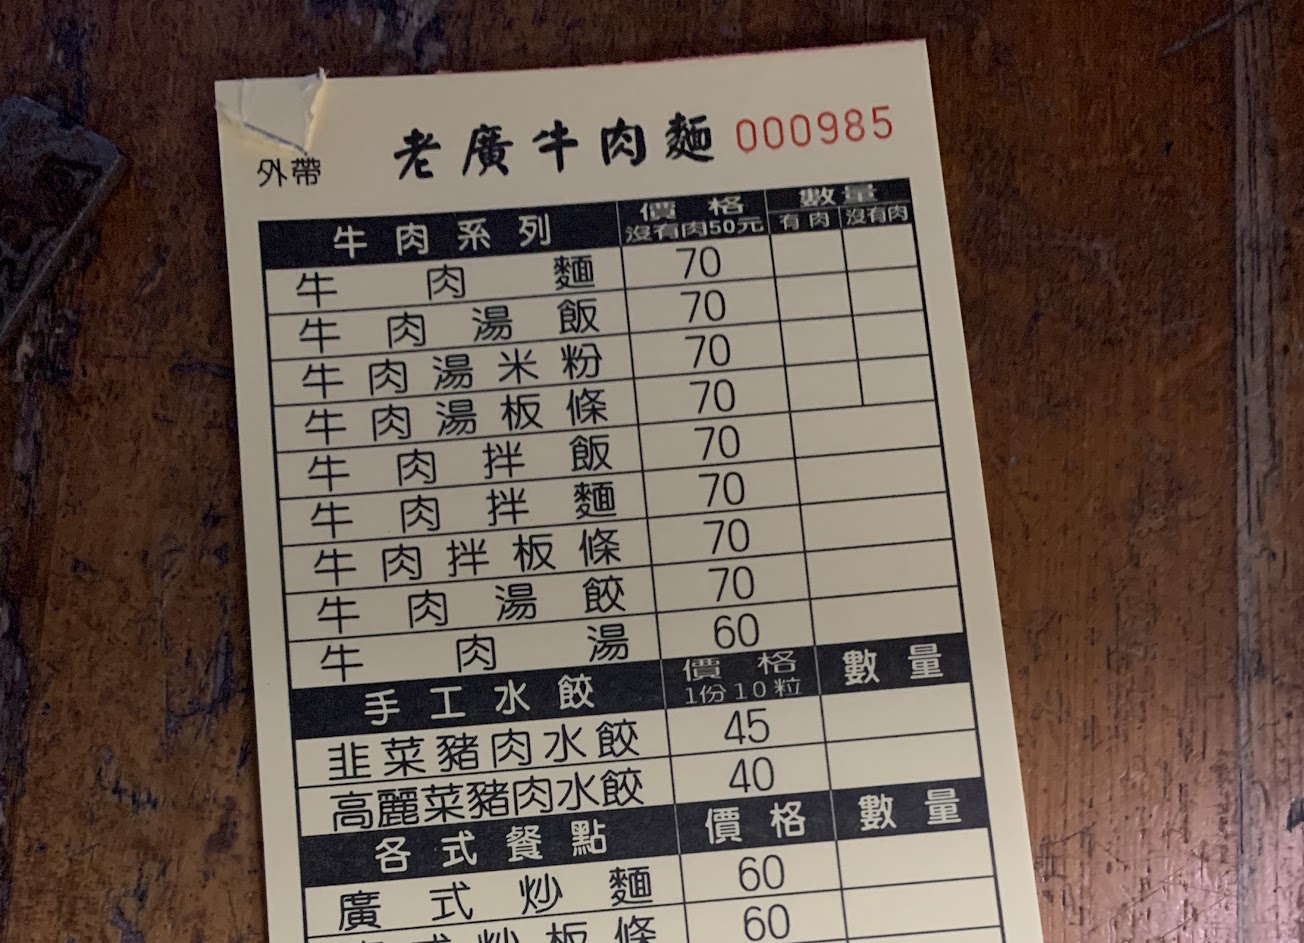 老廣牛肉麵 000985
外帶
牛肉系列 價格 數量
沒有肉50元 有肉 沒有肉
牛肉麵 70
牛肉湯飯 70
牛肉湯米粉 70
牛肉湯板條 70
牛肉拌飯 70
牛肉拌麵 70
牛肉拌板條 70
牛肉湯餃 70
牛肉湯 60
手工水餃 價格 數量
1份10粒
韭菜豬肉水餃 45
高麗菜豬肉水餃 40
各式餐點 價格 數量
廣式炒麵 60
式炒板條 60